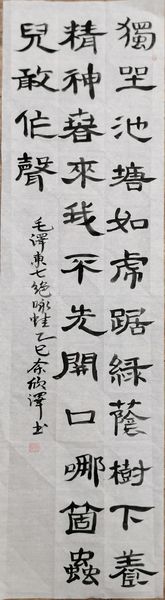 獨坐池塘如虎踞綠蔭樹下養
精神春來我不先開口哪箇蟲
兒敢作聲
毛澤東七絕咏蛙乙巳奈欣澤书